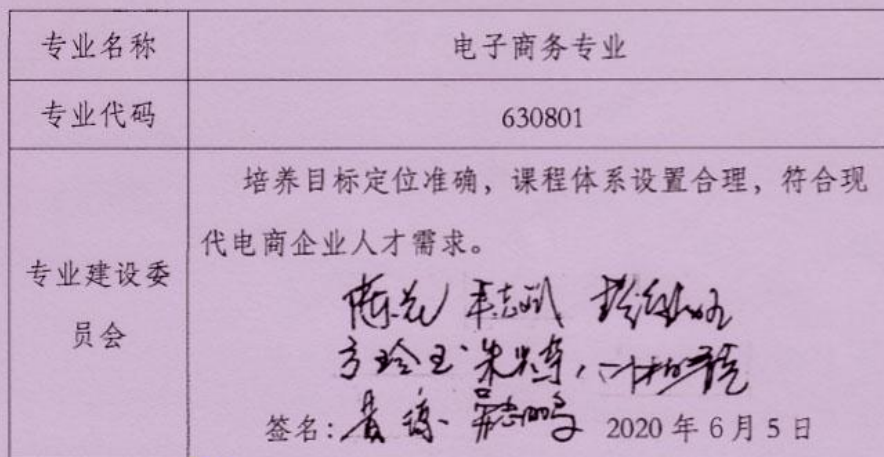 专业名称
电子商务专业
专业代码
630801
专业建设委
员会
培养目标定位准确，课程体系设置合理，符合现
代电商企业人才需求。
方玲玉
签名：
2020 年 6 月 5 日